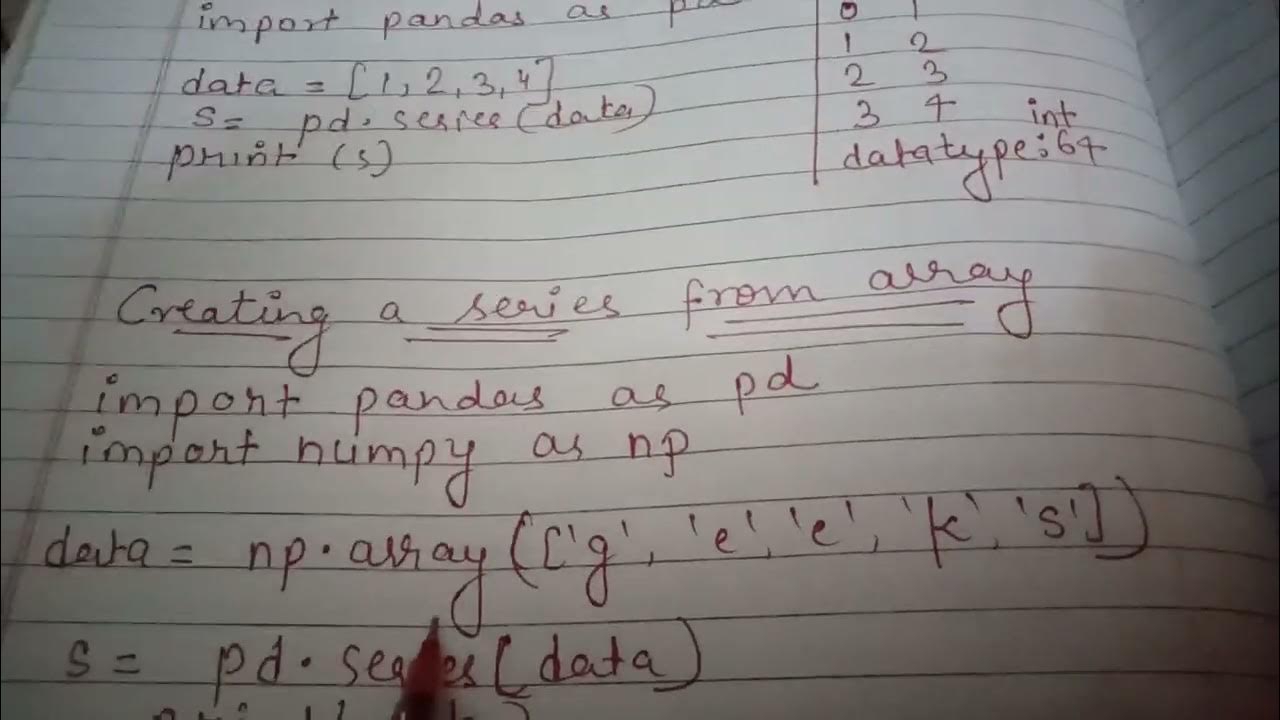 import pandas as pd
data = [1, 2, 3, 4]
s= pd.series(data)
print (s)
0 1
1 2
2 3
3 4 int
datatype:64
Creating a series from array
import pandas as pd
import numpy as np
data = np.array(['g', 'e', 'e', 'k', 's'])
s = pd.series(data)